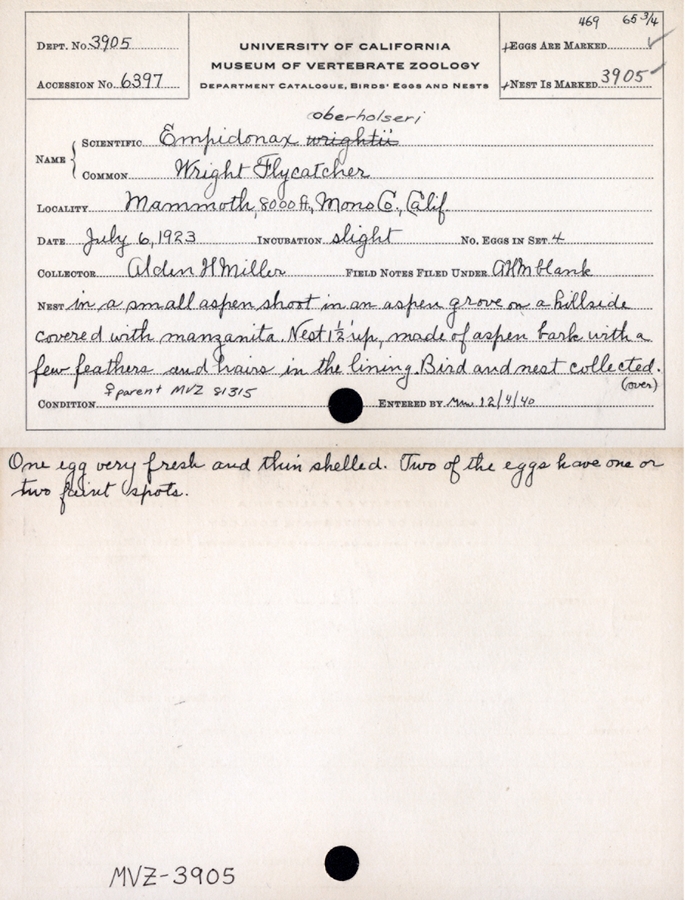 469 65 3/4
DEPT. NO. 3905
UNIVERSITY OF CALIFORNIA
MUSEUM OF VERTEBRATE ZOOLOGY
DEPARTMENT CATALOGUE, BIRDS' EGGS AND NESTS
+EGGS ARE MARKED ✓
ACCESSION NO. 6397
+NEST IS MARKED 3905 ✓
oberholseri
NAME { SCIENTIFIC Empidonax wrightii
COMMON Wright Flycatcher
LOCALITY Mammoth, 8000 ft., Mono Co., Calif.
DATE July 6, 1923 INCUBATION slight NO. EGGS IN SET 4
COLLECTOR Alden H Miller FIELD NOTES FILED UNDER AHM blank
NEST in a small aspen shoot in an aspen grove on a hillside
covered with manzanita. Nest 1½' up, made of aspen bark with a
few feathers and hairs in the lining. Bird and nest collected.
(over)
♀ parent MVZ 81315
CONDITION ENTERED BY 12/4/40
One egg very fresh and thin shelled. Two of the eggs have one or
two faint spots.
MVZ-3905